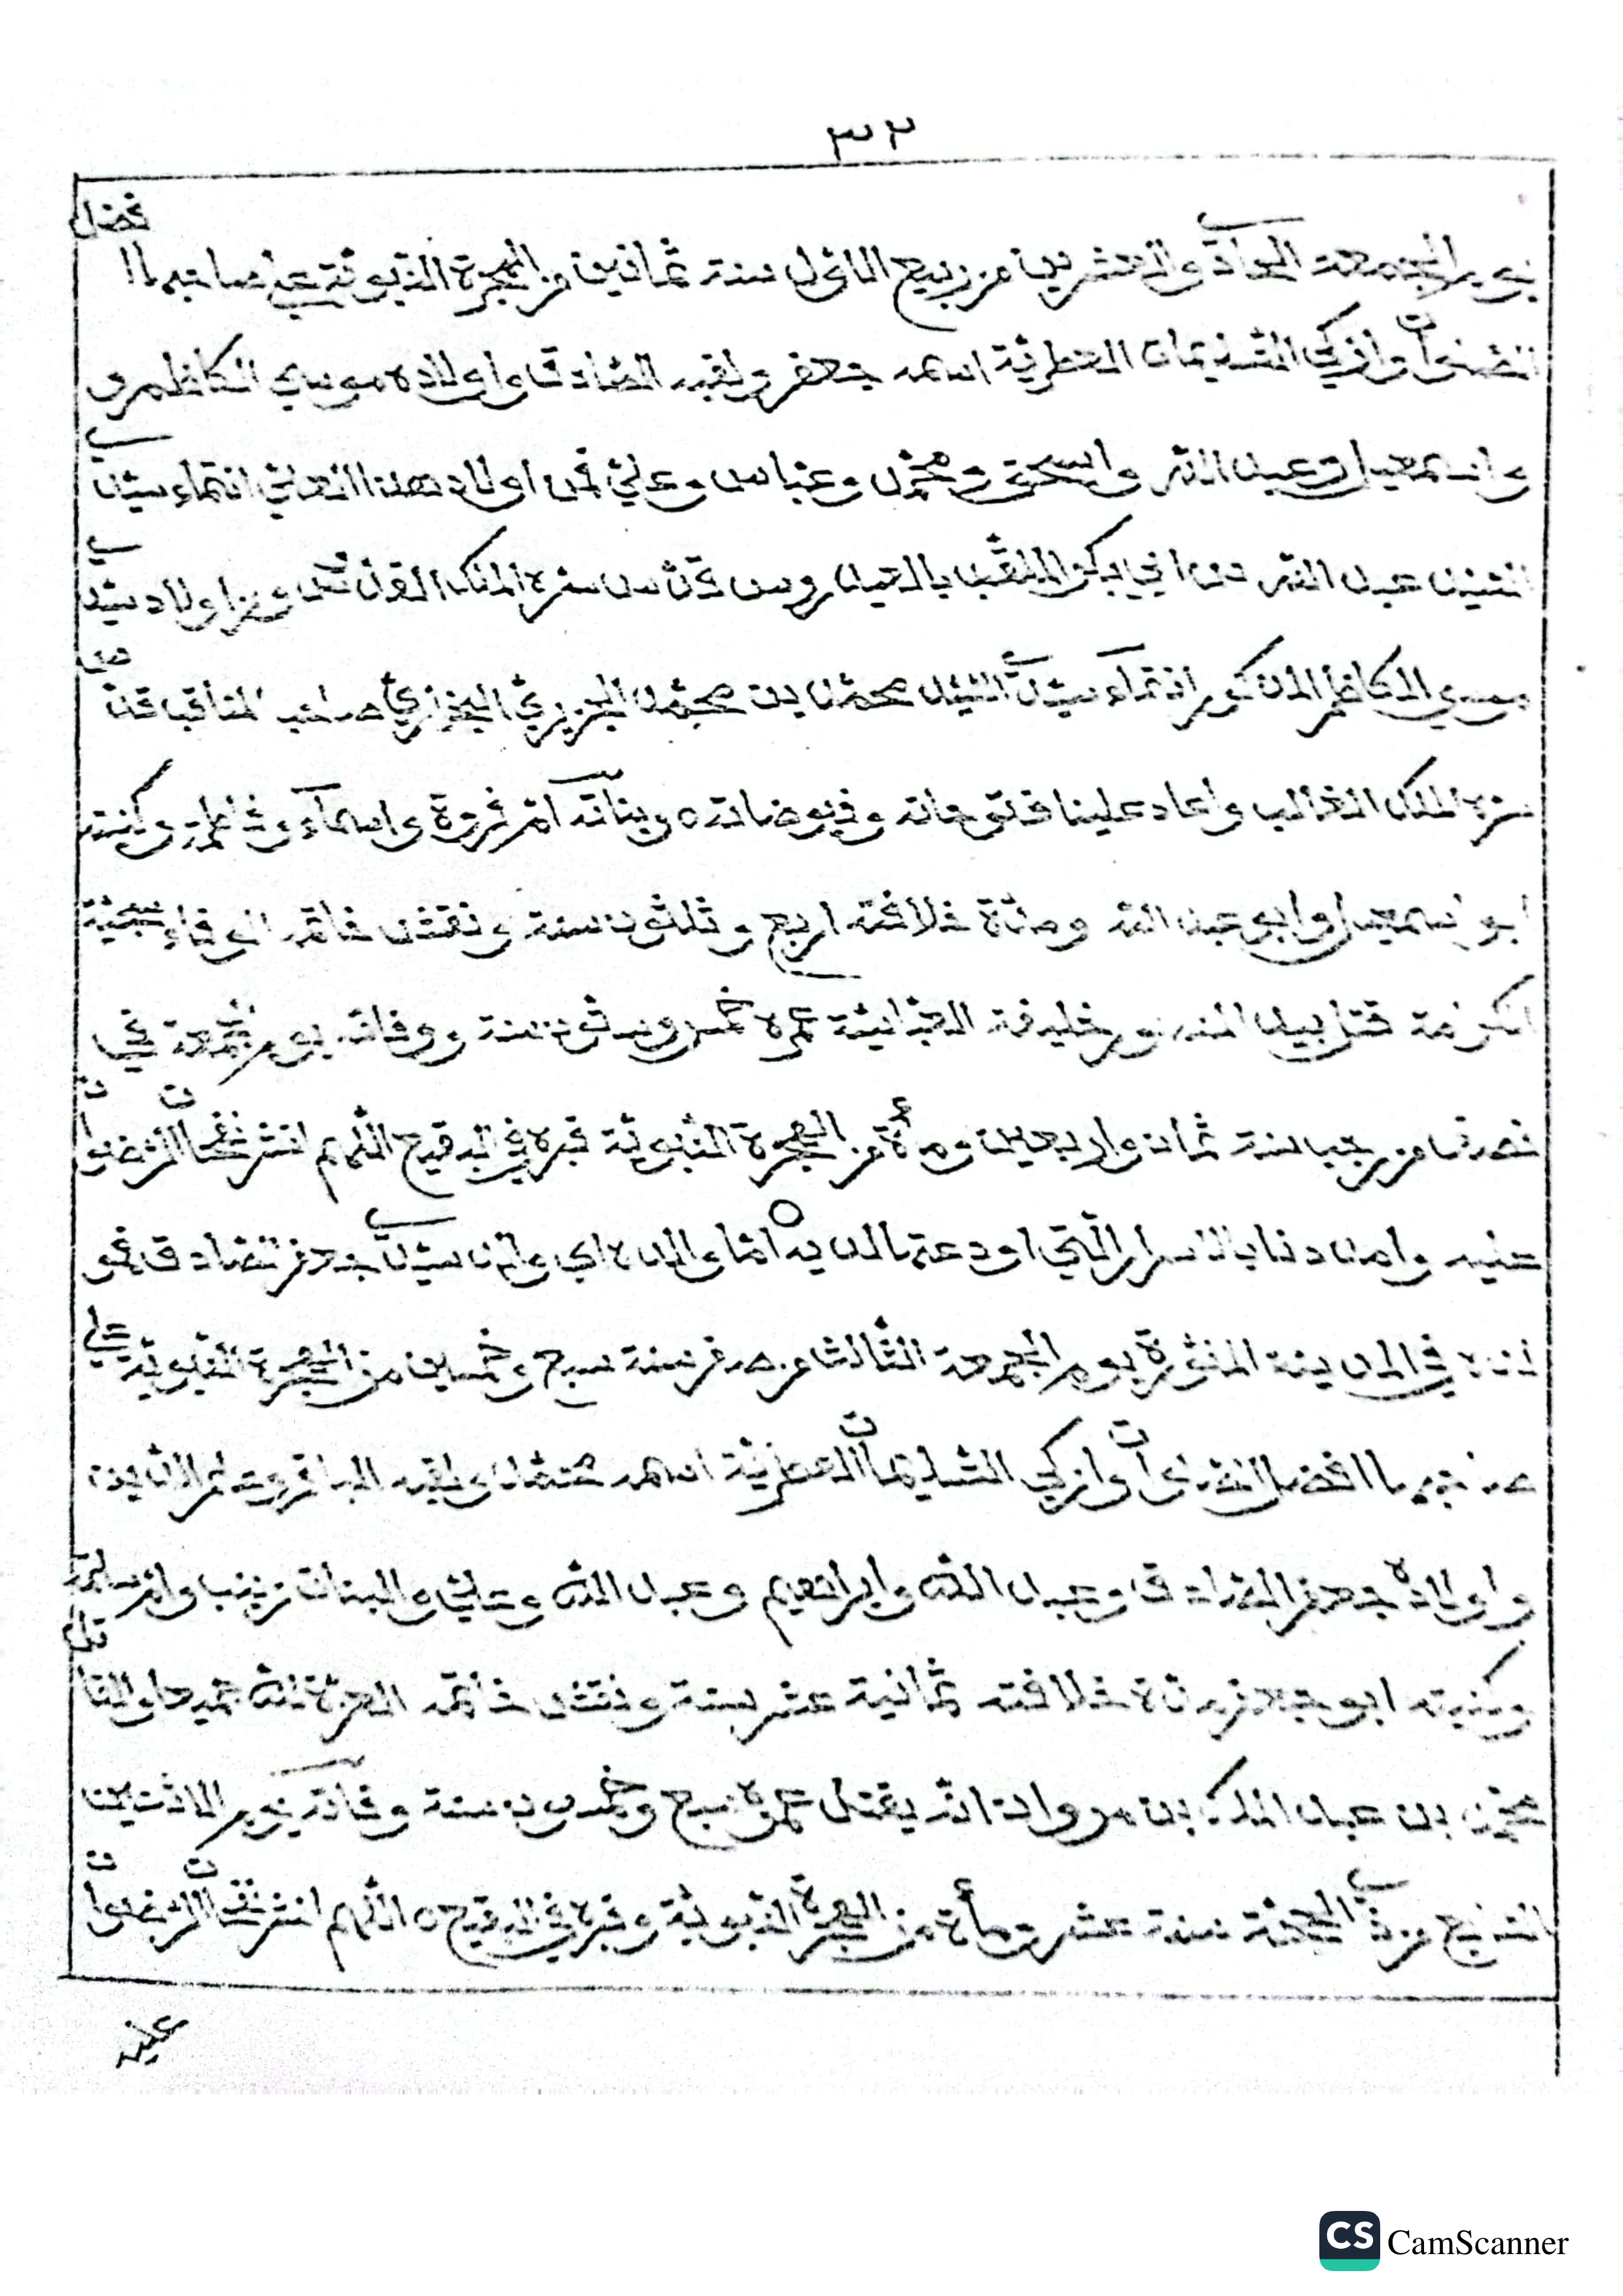 ٣٢
يوم الجمعة الحادي والعشرين من ربيع الاول سنة ثمانين من الهجرة النبوية على صاحبها افضل
الصلوات وازكي التسليمات العطرية اسمه جعفر ولقبه الصادق واولاده موسي الكاظم
واسمعيل وعبد الله واسحق ومحمد وعباس وعلي فمن اولاد هذا العلي انتماء سيدي
السيد عبد الله بن ابي بكر الملقب بالعيدروس قدس سره الملك القدوس ومن اولاد سيدي
موسي الكاظم المذكور انتماء سيدي السيد محمد بن محمد الجزيري البخاري صاحب المناقب قدس
سره الملك الغالب واعاد علينا فتوحاته وفيوضاته ٥ وبناته ام فروة واسماء وفاطمة وكنيته
ابو اسمعيل وابو عبد الله ومدة خلافته اربع وثلثون سنة ونقش خاتمه الوفاء سجية
الكرامة قتل بيد المنصور خليفة العباسية عمره خمس وستون سنة ووفاته يوم الجمعة في
نصف من رجب سنة ثمان واربعين ومأة من الهجرة النبوية قبره في البقيع اللهم انشر نفحات الرضوان
عليه وامدنا بالاسرار التي اودعتها لديه ٥ اما والده اي والد سيدي جعفر الصادق فهو
انه في المدينة المنورة يوم الجمعة الثالث من صفر سنة سبع وخمسين من الهجرة النبوية على
صاحبها افضل الصلوات وازكي التسليمات العطرية اسمه محمد ولقبه الباقر وعلم الدين
واولاده جعفر الصادق وعبد الله وابراهيم وعبد الله وعلي والبنات زينب وام سلمة
وكنيته ابو جعفر مدة خلافته ثمانية عشر سنة ونقش خاتمه العزة لله جميعا والقاتل
محمد بن عبد الملك بن مروان انه يقتل عمره سبع وخمسون سنة وفاته يوم الاثنين
السابع من ذي الحجة سنة عشر ومأة من الهجرة النبوية وقبره في البقيع ٥ اللهم انشر نفحات الرضوان
عليه
CS CamScanner